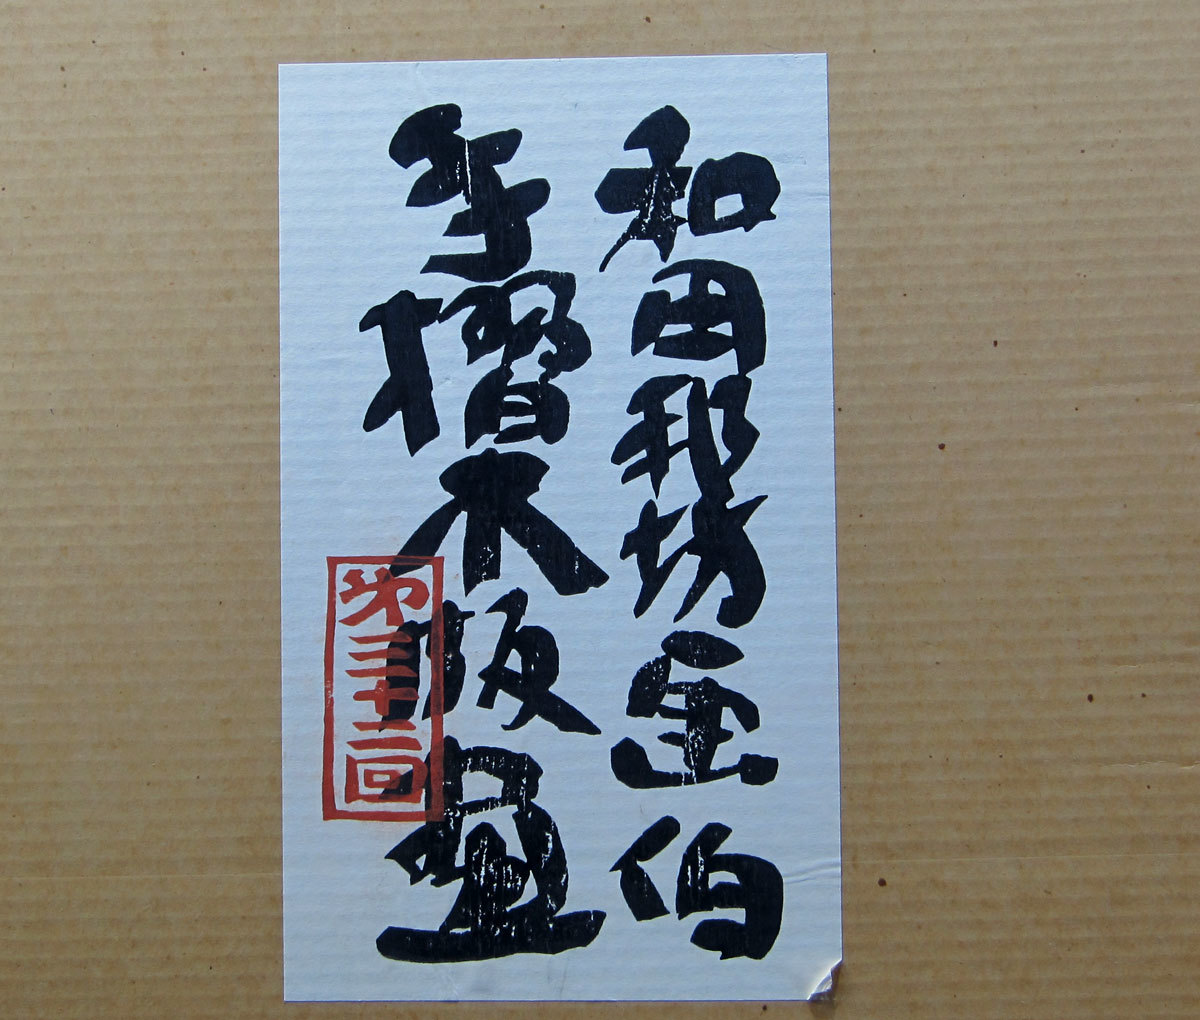 和田邦坊画伯
手摺木版畫
第三十二回